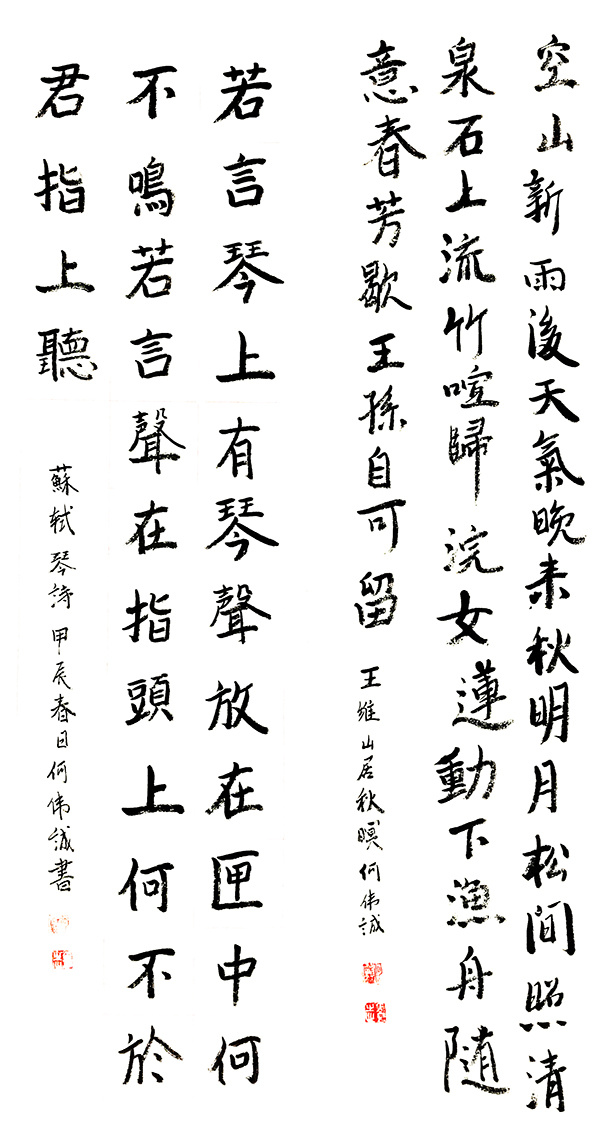 空山新雨後天氣晚来秋明月松間照清
泉石上流竹喧歸浣女蓮動下漁舟隨
意春芳歇王孫自可留
王維山居秋暝何伟誠
若言琴上有琴聲放在匣中何
不鳴若言聲在指頭上何不於
君指上聽
蘇軾琴詩甲辰春日何伟誠書